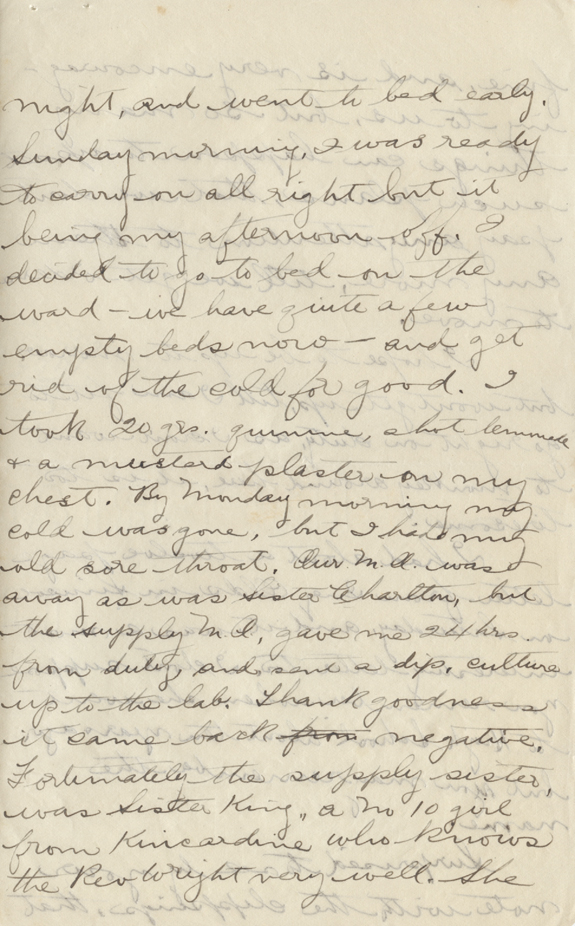 night, and went to bed early.
Sunday morning, I was ready
to carry on all right but it
being my afternoon off. I
decided to go to bed, on the
ward - we have quite a few
empty beds now - and get
rid of the cold for good. I
took 20 grs. quinine, a hot lemonade
& a mustard plaster on my
chest. By Monday morning my
cold was gone, but I had my
old sore throat. Our M.O. was
away as was Sister Charlton, but
the supply M.O, gave me 24 hrs.
from duty, and sent a dip. culture
up to the lab. Thank goodness
it came back from negative.
Fortunately the supply sister,
was Sister King, a No 10 girl
from Kincardine who knows
the Rev Wright very well. She